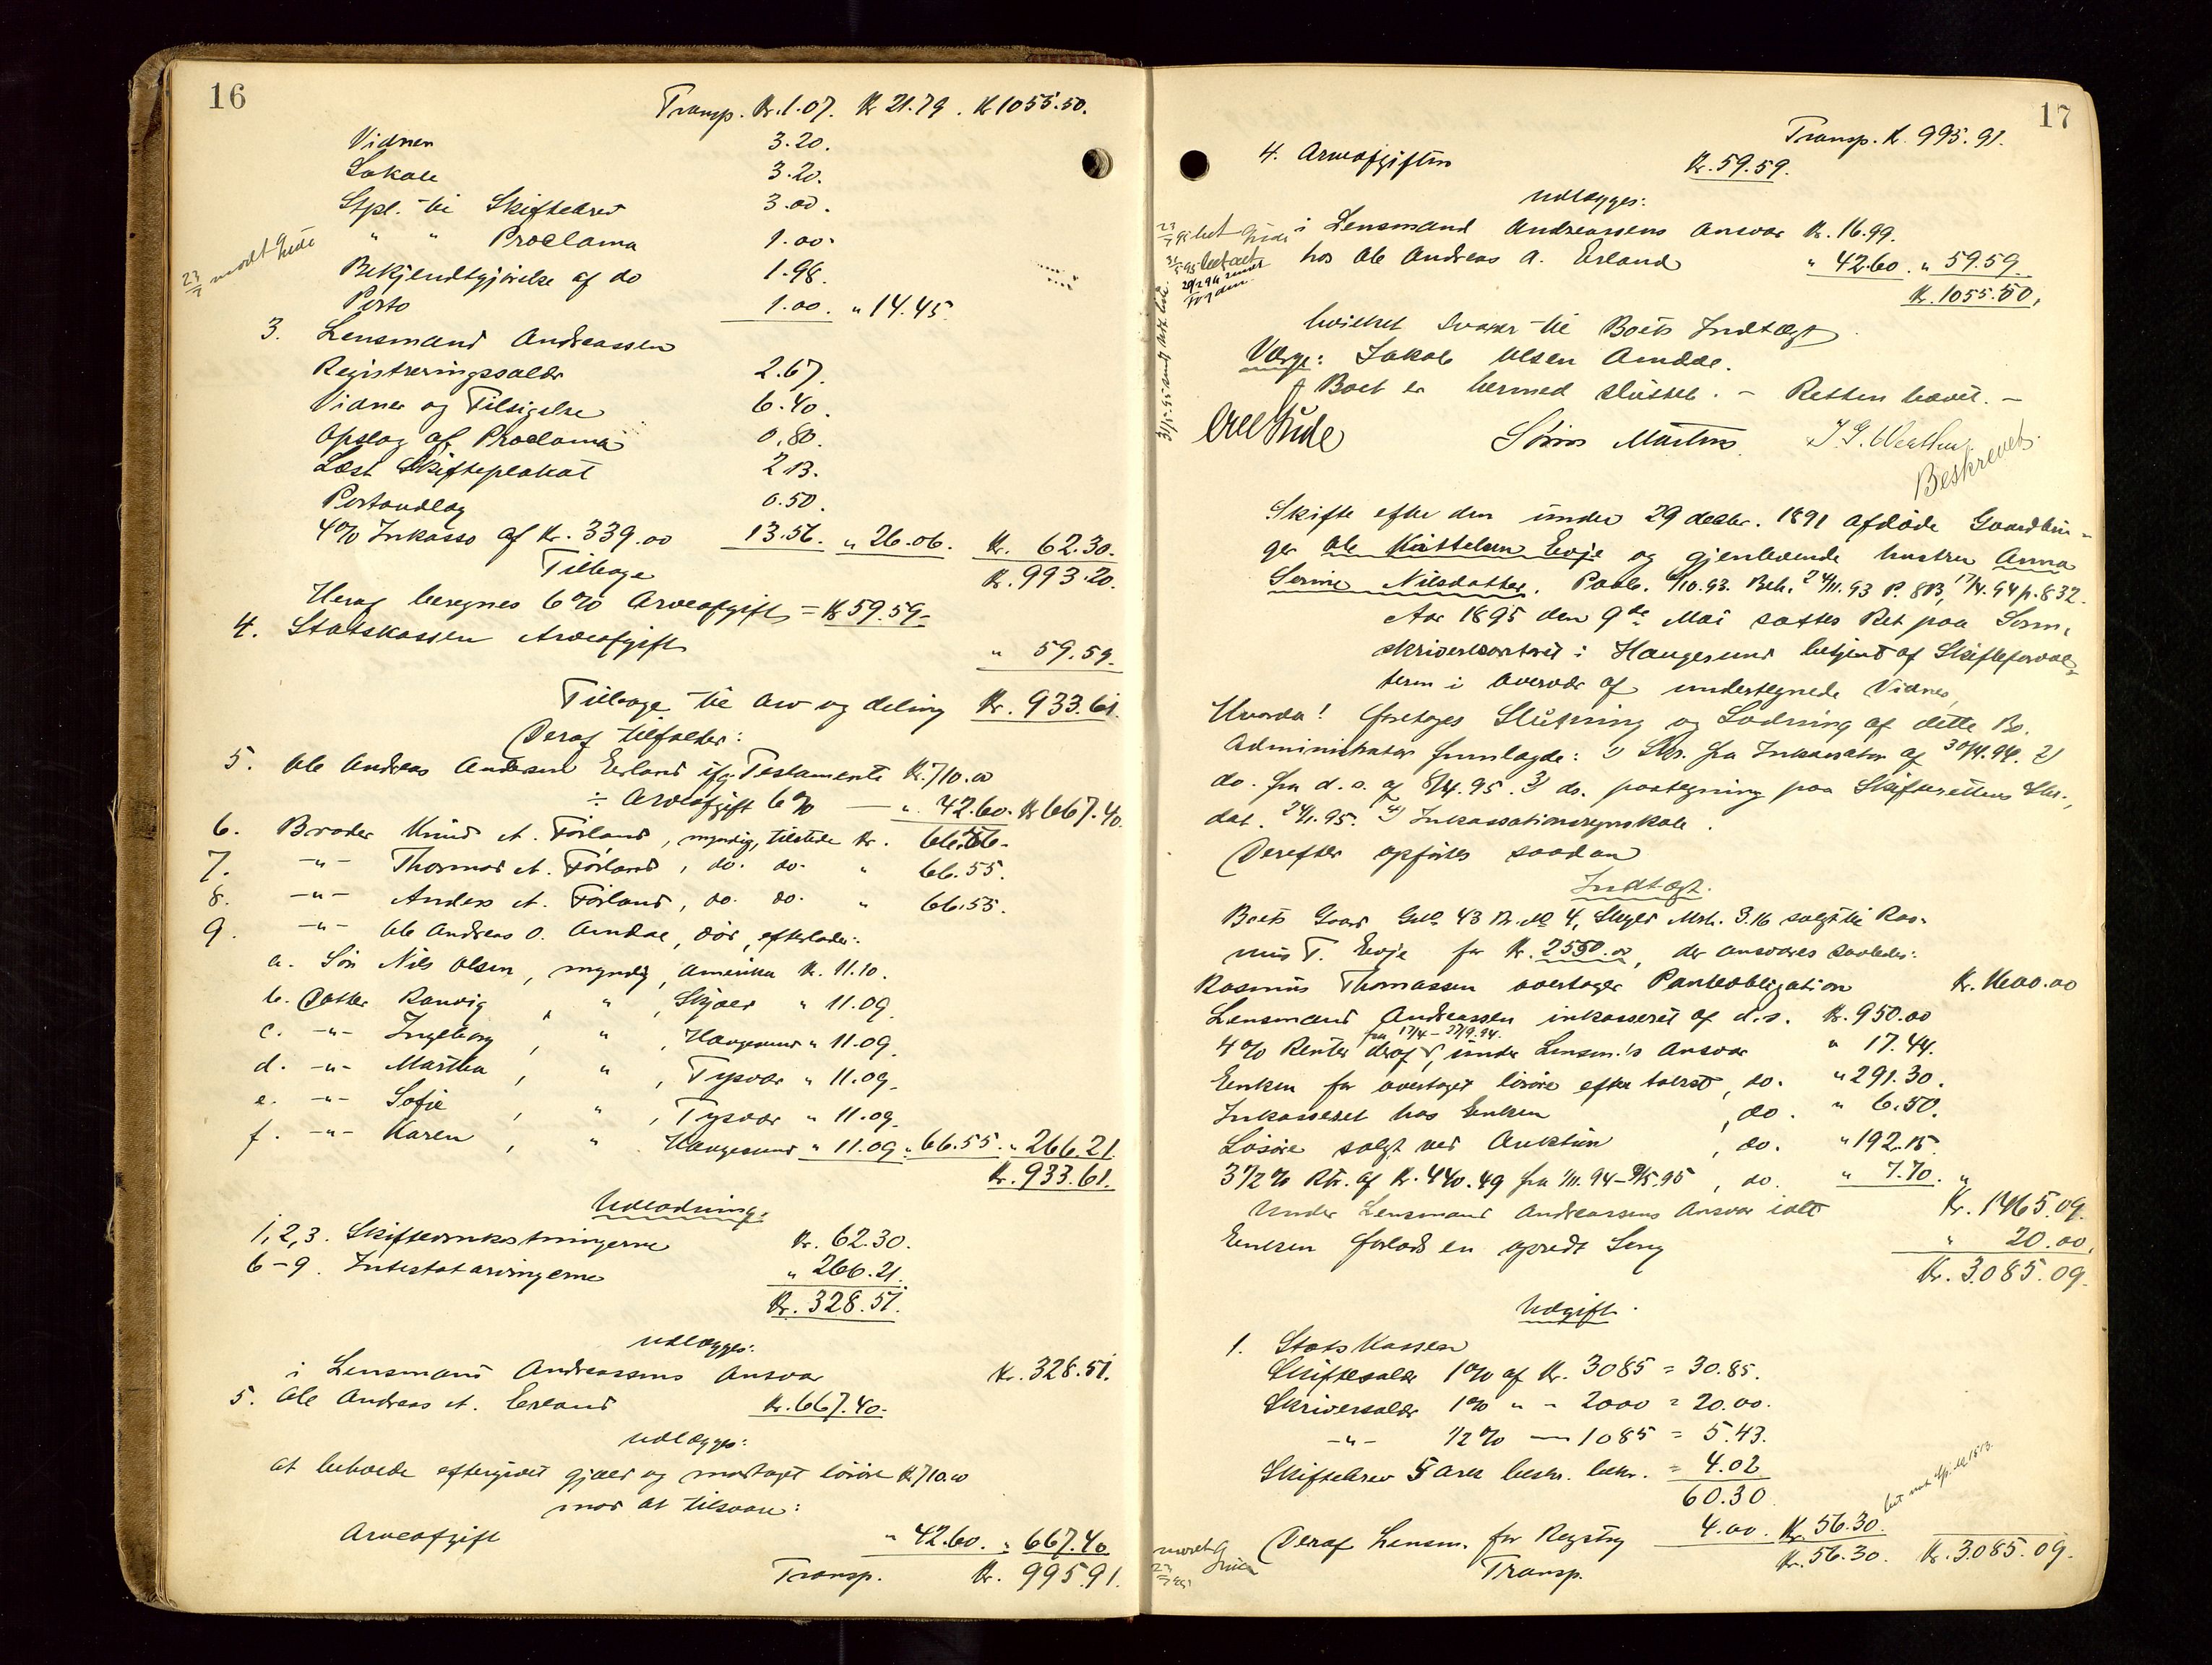 16
Transp. Kr. 1.07. Kr 21.79. Kr 1055.50.
Vidner 3.20.
Lokale 3.20.
Stpl. til Skiftebrev 3.00.
" " Proclama 1.00.
Bekjendtgjørelse af do 1.98.
Porto 1.00. " 14.45
3. Lensmand Andreassen
Registreringssalær 2.67.
Vidner og Tilsigelse 6.40.
Opslag af Proclama 0.80.
Læst Skifteplakat 2.13.
Portoudlæg 0.50.
4% Inkasso af Kr. 339.00 13.56. " 26.06. Kr. 62.30.
Tilbage Kr. 993.20.
Heraf beregnes 6% Arveafgift = Kr 59.59
4. Statskassen Arveafgift " 59.59.
Tilbage til Arv og deling Kr. 933.61.
Deraf tilfalder:
5. Ole Andreas Andersen Erland ifg. Testamente Kr. 710.00
÷ Arveafgift 6% — " 42.60. Kr 667.40.
6. Broder Knud A. Førland, myndig, tilstede Kr. 66.56.
7. -"- Thormod A. Førland, do. do. " 66.55.
8. -"- Anders A. Førland, do. do. " 66.55.
9. -"- Ole Andreas O. Amdal, død, efterlader:
a. Søn Nils Olsen, myndig, Amerika Kr. 11.10.
b. Datter Ranvig, " , Skjold " 11.09.
c. -"- Ingeborg, " , Haugesund " 11.09.
d. -"- Martha, " , Tysvær " 11.09.
e. -"- Sofie, " , Tysvær " 11.09.
f. -"- Karen, " Haugesund " 11.09 " 66.55. " 266.21.
Kr. 933.61.
Udlodning:
1,2,3. Skifteomkostningerne Kr. 62.30.
6-9. Intestatarvingerne " 266.21.
Kr. 328.51.
udlægges:
i Lensmand Andreassens Ansvar Kr. 328.51.
5. Ole Andreas A. Erland Kr. 667.40.
udlægges:
at beholde eftergivet gjæld og modtaget løsøre Kr 710.00
mod at tilsvare:
Arveafgift " 42.60. " 667.40
Transp. Kr. 995.91.
17
Transp. Kr. 995.91.
4. Arveafgiften Kr. 59.59.
udlægges:
i Lensmand Andreassens Ansvar Kr. 16.99.
hos Ole Andreas A. Erland " 42.60. " 59.59.
Kr. 1055.50,
hvilket svarer til Boets Indtægt.
Værge: Jakob Olsen Amdal.
Boet er hermed sluttet. - Retten hævet. -
Beskrevet.
Skifte efter den under 29 decbr. 1891 afdøde Gaardbru-
ger Ole Kittelsen Evje og gjenlevende hustru Anna
Serine Nilsdatter. Paab. 9/10.93. Beh. 24/11.93 P. 813, 17/4.94 p. 832.
Aar 1895 den 9de Mai sattes Ret paa Soren-
skriverkontoret i Haugesund betjent af Skifteforval-
teren i Overvær af undertegnede Vidner,
Hvorda! foretoges Slutning og Lodning af dette Bo.
Administrator fremlagde: 1) Skr. fra Inkassator af 30/4.94. 2)
do. fra d. s. af 8/4.95. 3) do. paategning paa Skifterettens Skr.,
dat. 24/1.95. 4) Inkassationsregnskab.
Derefter opførtes saadan
Indtægt.
Boets Gaard Gno 43 Br. No 4, Skyld Mrk. 3.16 solgt til Ras-
mus T. Evje for Kr. 2550.00, der ansvares saaledes:
Rasmus Thomassen overtager Panteobligation Kr. 1600.00
Lensmand Andreassen inkasseret af d.s. Kr. 950.00
fra 17/4 - 27/9.94.
4% Renter deraf, under Lensm.'s Ansvar " 17.44.
Enken for overtaget løsøre efter takst, do. " 291.30.
Inkasseret hos Enken, do. " 6.50.
Løsøre solgt ved Auktion, do. " 192.15.
3 1/2% Rtr. af Kr. 440.49 fra 1/11.94 - 9/5.95, do. " 7.70. "
Under Lensmand Andreassens Ansvar ialt Kr. 1465.09.
Enken forlods en opredt Seng " 20.00.
Kr. 3085.09.
Udgift.
1. Statskassen
Skiftesalær 1% af Kr. 3085 = 30.85.
Skriversalær 1% " - 2000 = 20.00.
-"- 1/2% — 1085 = 5.43.
Skiftebrev 5 ark beskr. bekr. = 4.02
60.30
Deraf Lensm. for Regstrg 4.00. Kr. 56.30.
Transp. Kr. 56.30. Kr. 3085.09.